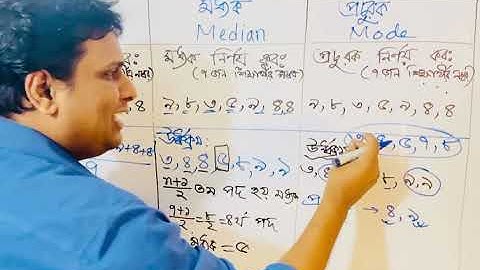 মধ্যক
Median
মধ্যক নির্ণয় কর:
(৭ জন শিক্ষার্থীর নম্বর)
৯, ৮, ৩, ৫, ৯, ৪, ৪
ঊর্ধ্বক্রম:
৩, ৪, ৪, ৫, ৮, ৯, ৯
n+১/২ তম পদ হয় মধ্যক
৭+১/২ = ৮/২ = ৪র্থ পদ
মধ্যক = ৫
প্রচুরক
Mode
প্রচুরক নির্ণয় কর:
(৭ জন শিক্ষার্থীর নম্বর)
৯, ৮, ৩, ৫, ৯, ৪, ৪
ঊর্ধ্বক্রম: ৫, ৭, ৮
৩, ৪ ৮, ৯, ৯
→ ৪, ৯
কর:
, ৪
৯+৪+৪